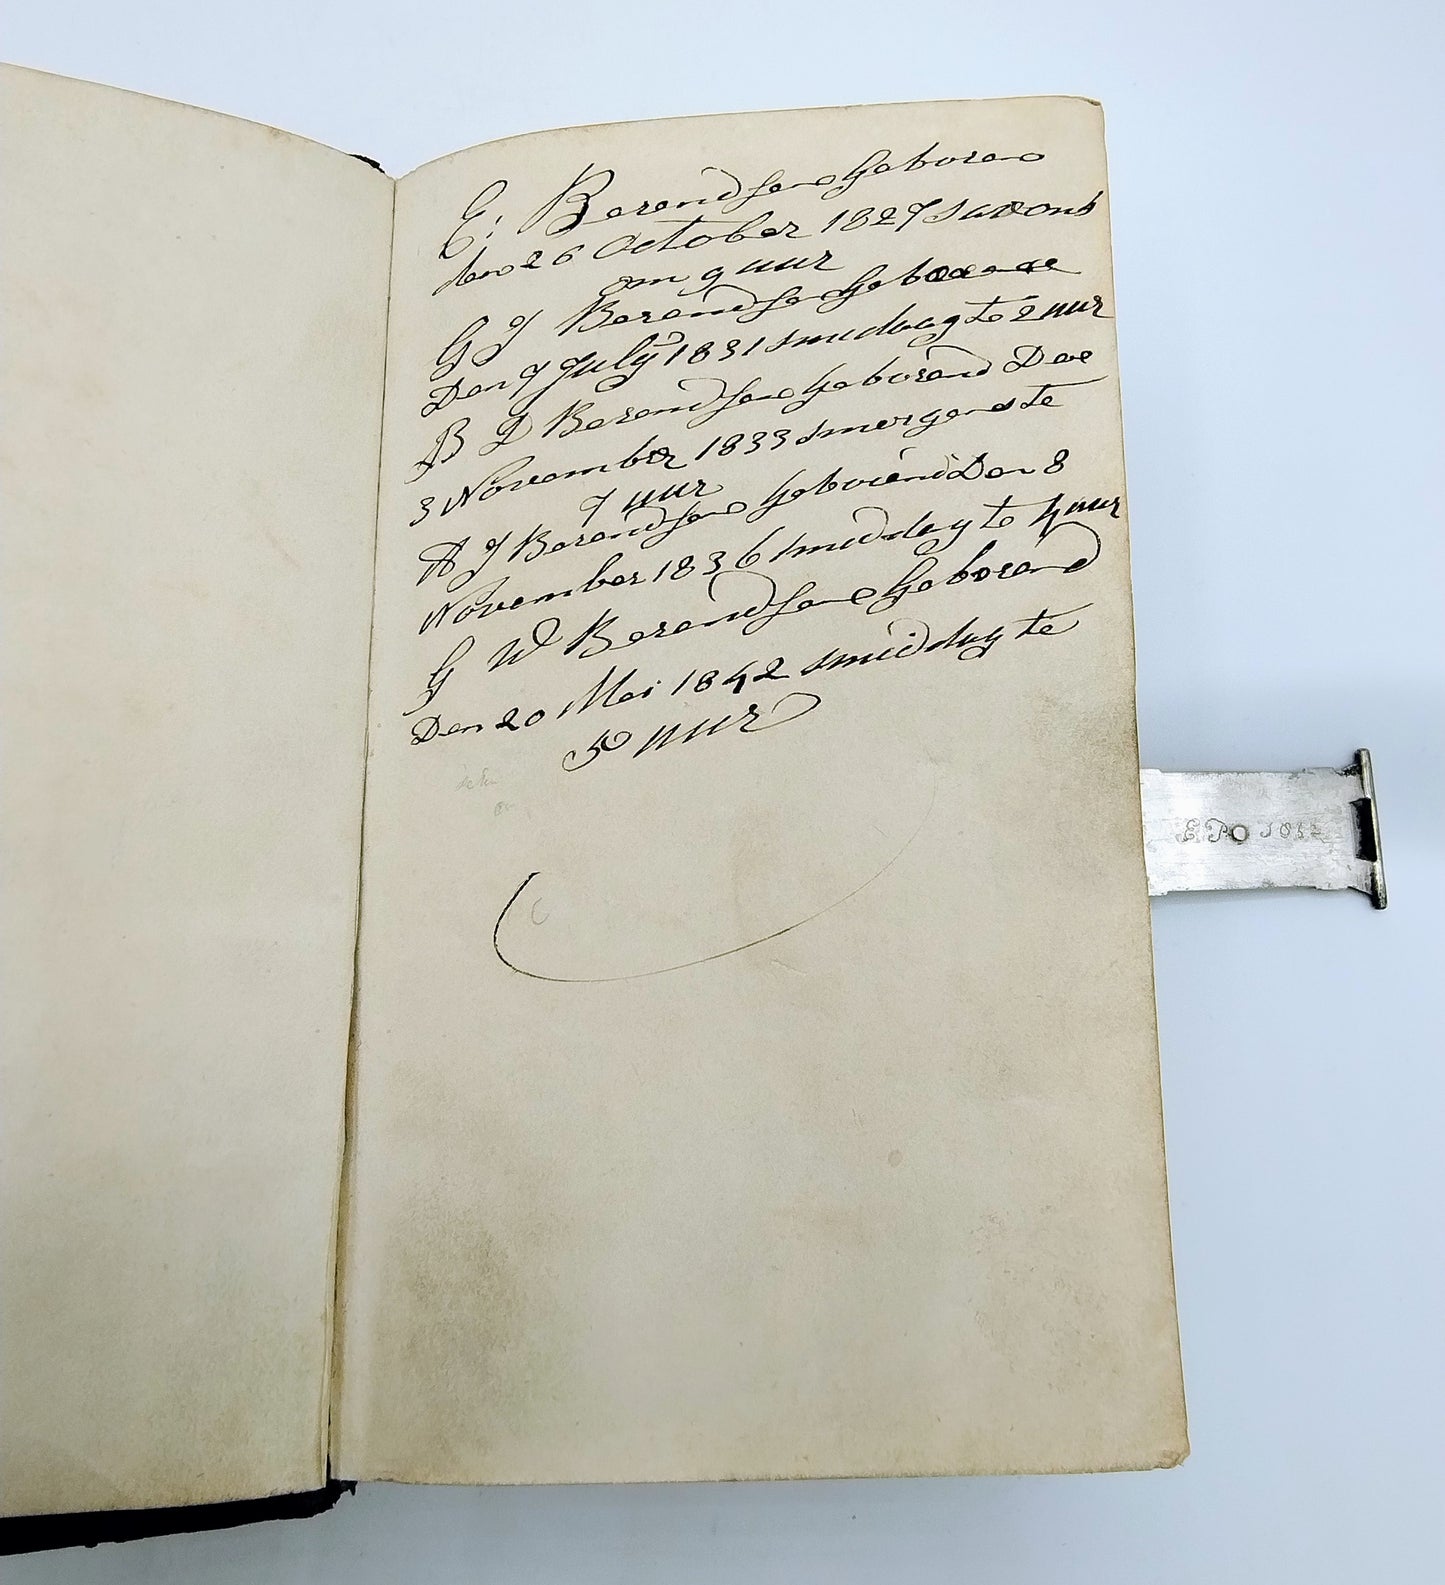 E: Berendsen Geboren
den 26 October 1827 savons
om 9 uur
G J Berendsen Geboren
Den 7 July 1831 smiddag te 2 uur
B D Berendsen Geborend Den
3 November 1833 smorgens te
7 uur
A J Berendsen Geborend Den 8
November 1836 smiddag te 4 uur
G W Berendsen Geborend
Den 20 Mei 1842 smiddag te
5 uur